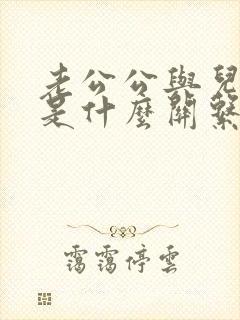 老公公與兒
是什麼關繫
靄靄停雲